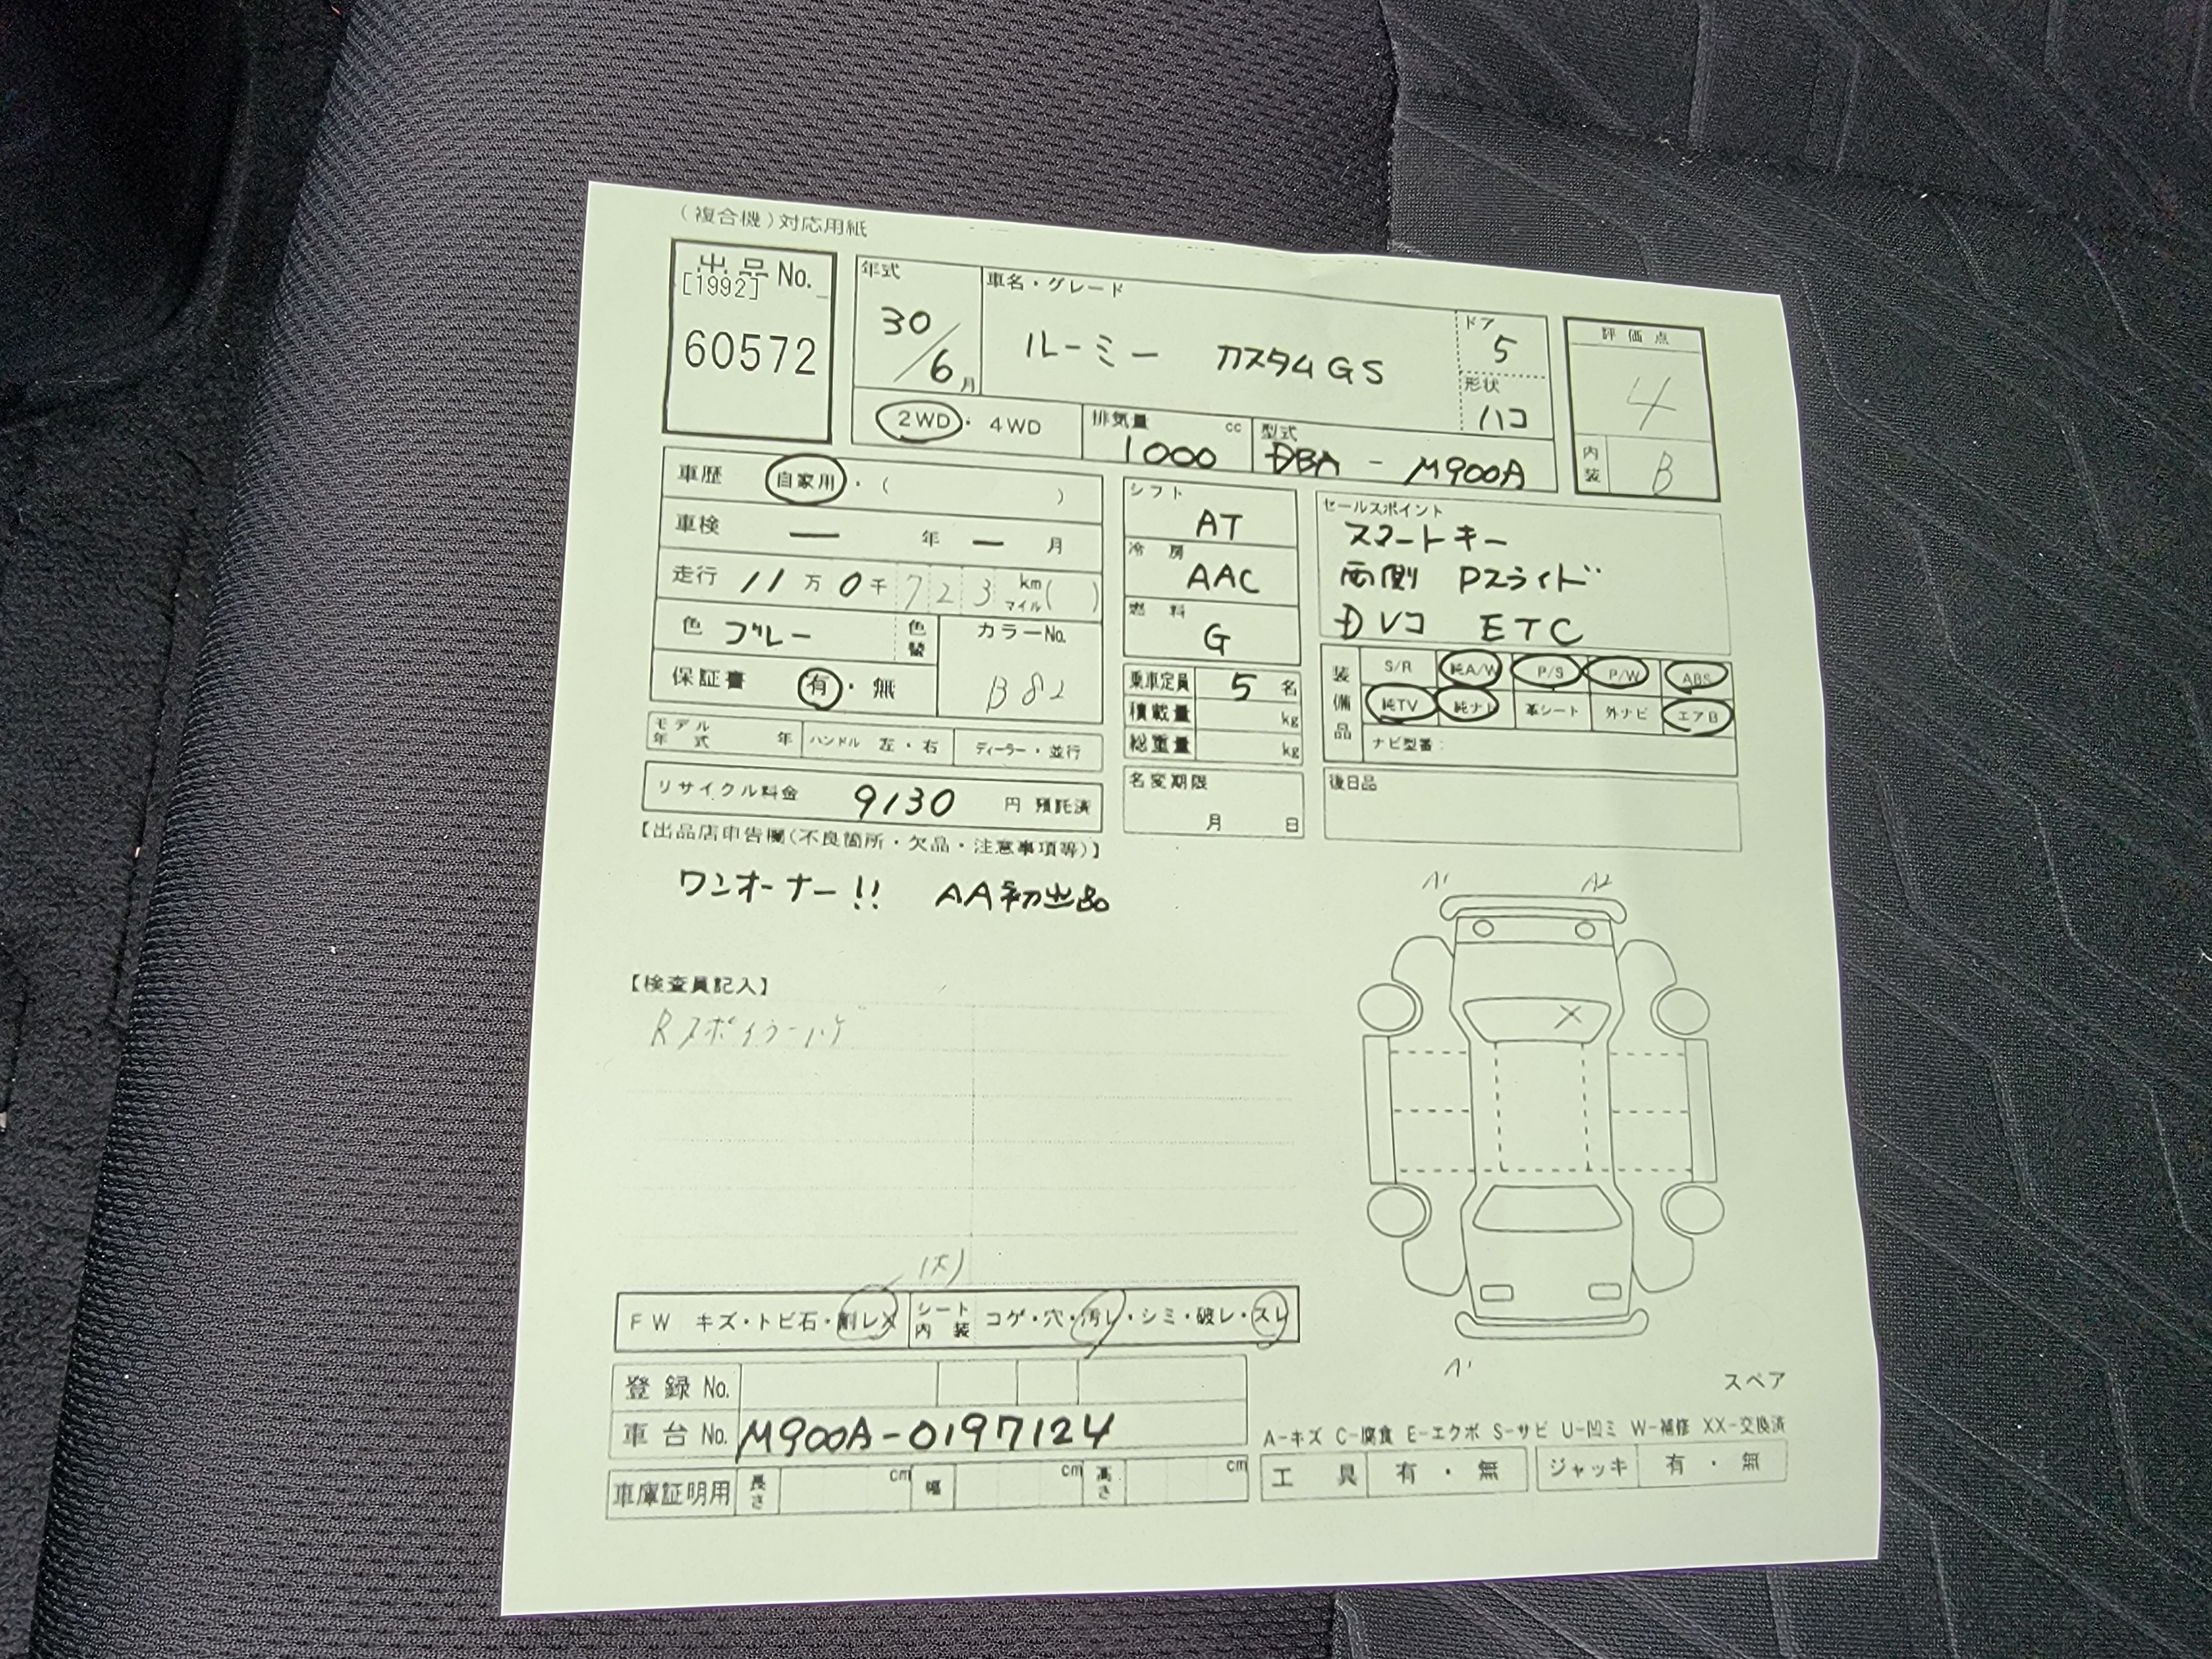 (複合機)対応用紙
出品 No.
[1992]
60572
年式
30/6月
車名・グレード
ルーミー カスタムGS
ドア
5
形状
ハコ
評価点
4
内装
B
2WD・4WD
排気量 cc
1000
型式
DBA - M900A
車歴 自家用・( )
車検 ー 年 ー 月
走行 11万0千723 km マイル( )
色 ブルー 色替
カラーNo.
B82
保証書 有・無
モデル年式 年 ハンドル 左・右 ディーラー・並行
リサイクル料金 9130 円 預託済
シフト
AT
冷房
AAC
燃料
G
乗車定員 5 名
積載量 kg
総重量 kg
名変期限
月 日
セールスポイント
スマートキー
両側 Pスライド
Dレコ ETC
装備品
S/R 純A/W P/S P/W ABS
純TV 純ナビ 革シート 外ナビ エアB
ナビ型番:
後日品
【出品店申告欄(不良箇所・欠品・注意事項等)】
ワンオーナー!! AA初出品
【検査員記入】
Rスポイラーハゲ
A1 A2
X
A1
(大)
FW キズ・トビ石・割レX シート内装 コゲ・穴・汚レ・シミ・破レ・スレ
登録 No.
車台 No. M900A-0197124
車庫証明用 長さ cm 幅 cm 高さ cm
スペア
A-キズ C-腐食 E-エクボ S-サビ U-凹ミ W-補修 XX-交換済
工具 有・無 ジャッキ 有・無